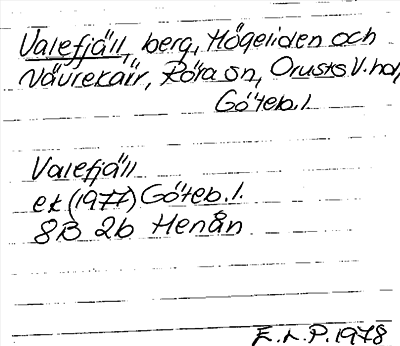 Valefjäll, berg, Högeliden och
Nävrekärr, Röra sn, Orusts V. hd,
Göteb. l.
Valefjäll
ek (1977) Göteb. l.
8B 2b Henån
E.L.P. 1978